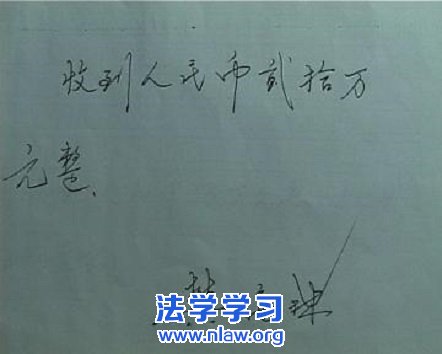 收到人民币贰拾万
元整、
法学学习
www.nlaw.org